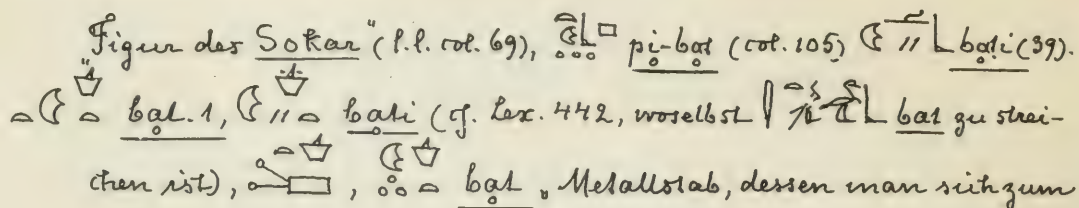 Figur des Sokar" (l.l. col. 69), pi-bat (col. 105) bati (39).
bat. 1, bati (cf. Lex. 442, woselbst bat zu strei-
chen ist), , bat „Metallstab, dessen man sich zum